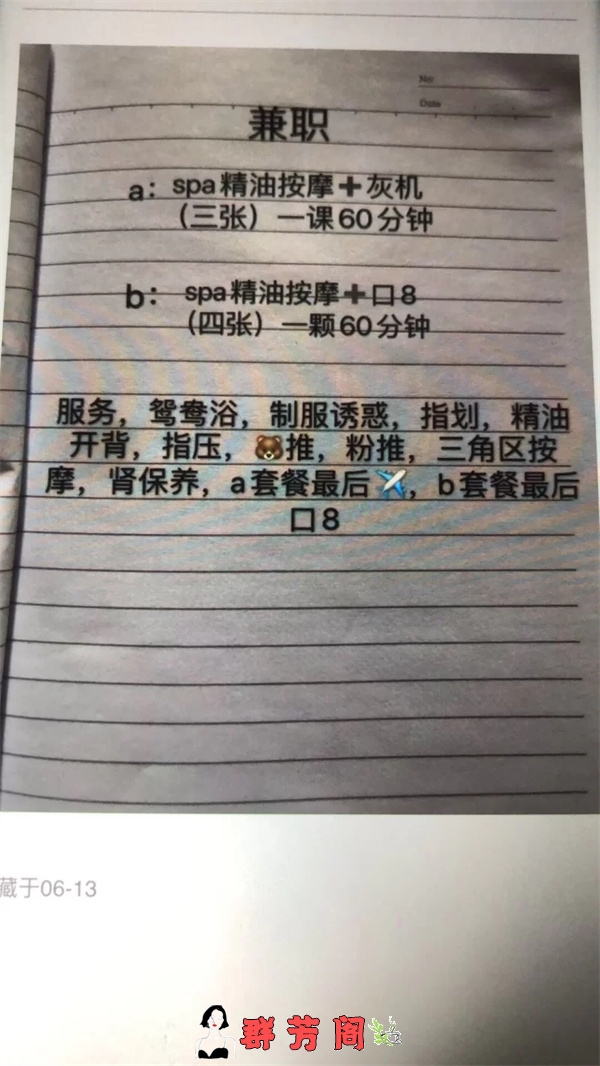 No
Date
兼职
a：spa精油按摩➕灰机
（三张）一课60分钟
b：spa精油按摩➕口8
（四张）一颗60分钟
服务，鸳鸯浴，制服诱惑，指划，精油
开背，指压，🐻推，粉推，三角区按
摩，肾保养，a套餐最后✈️，b套餐最后
口8
藏于06-13
群芳阁